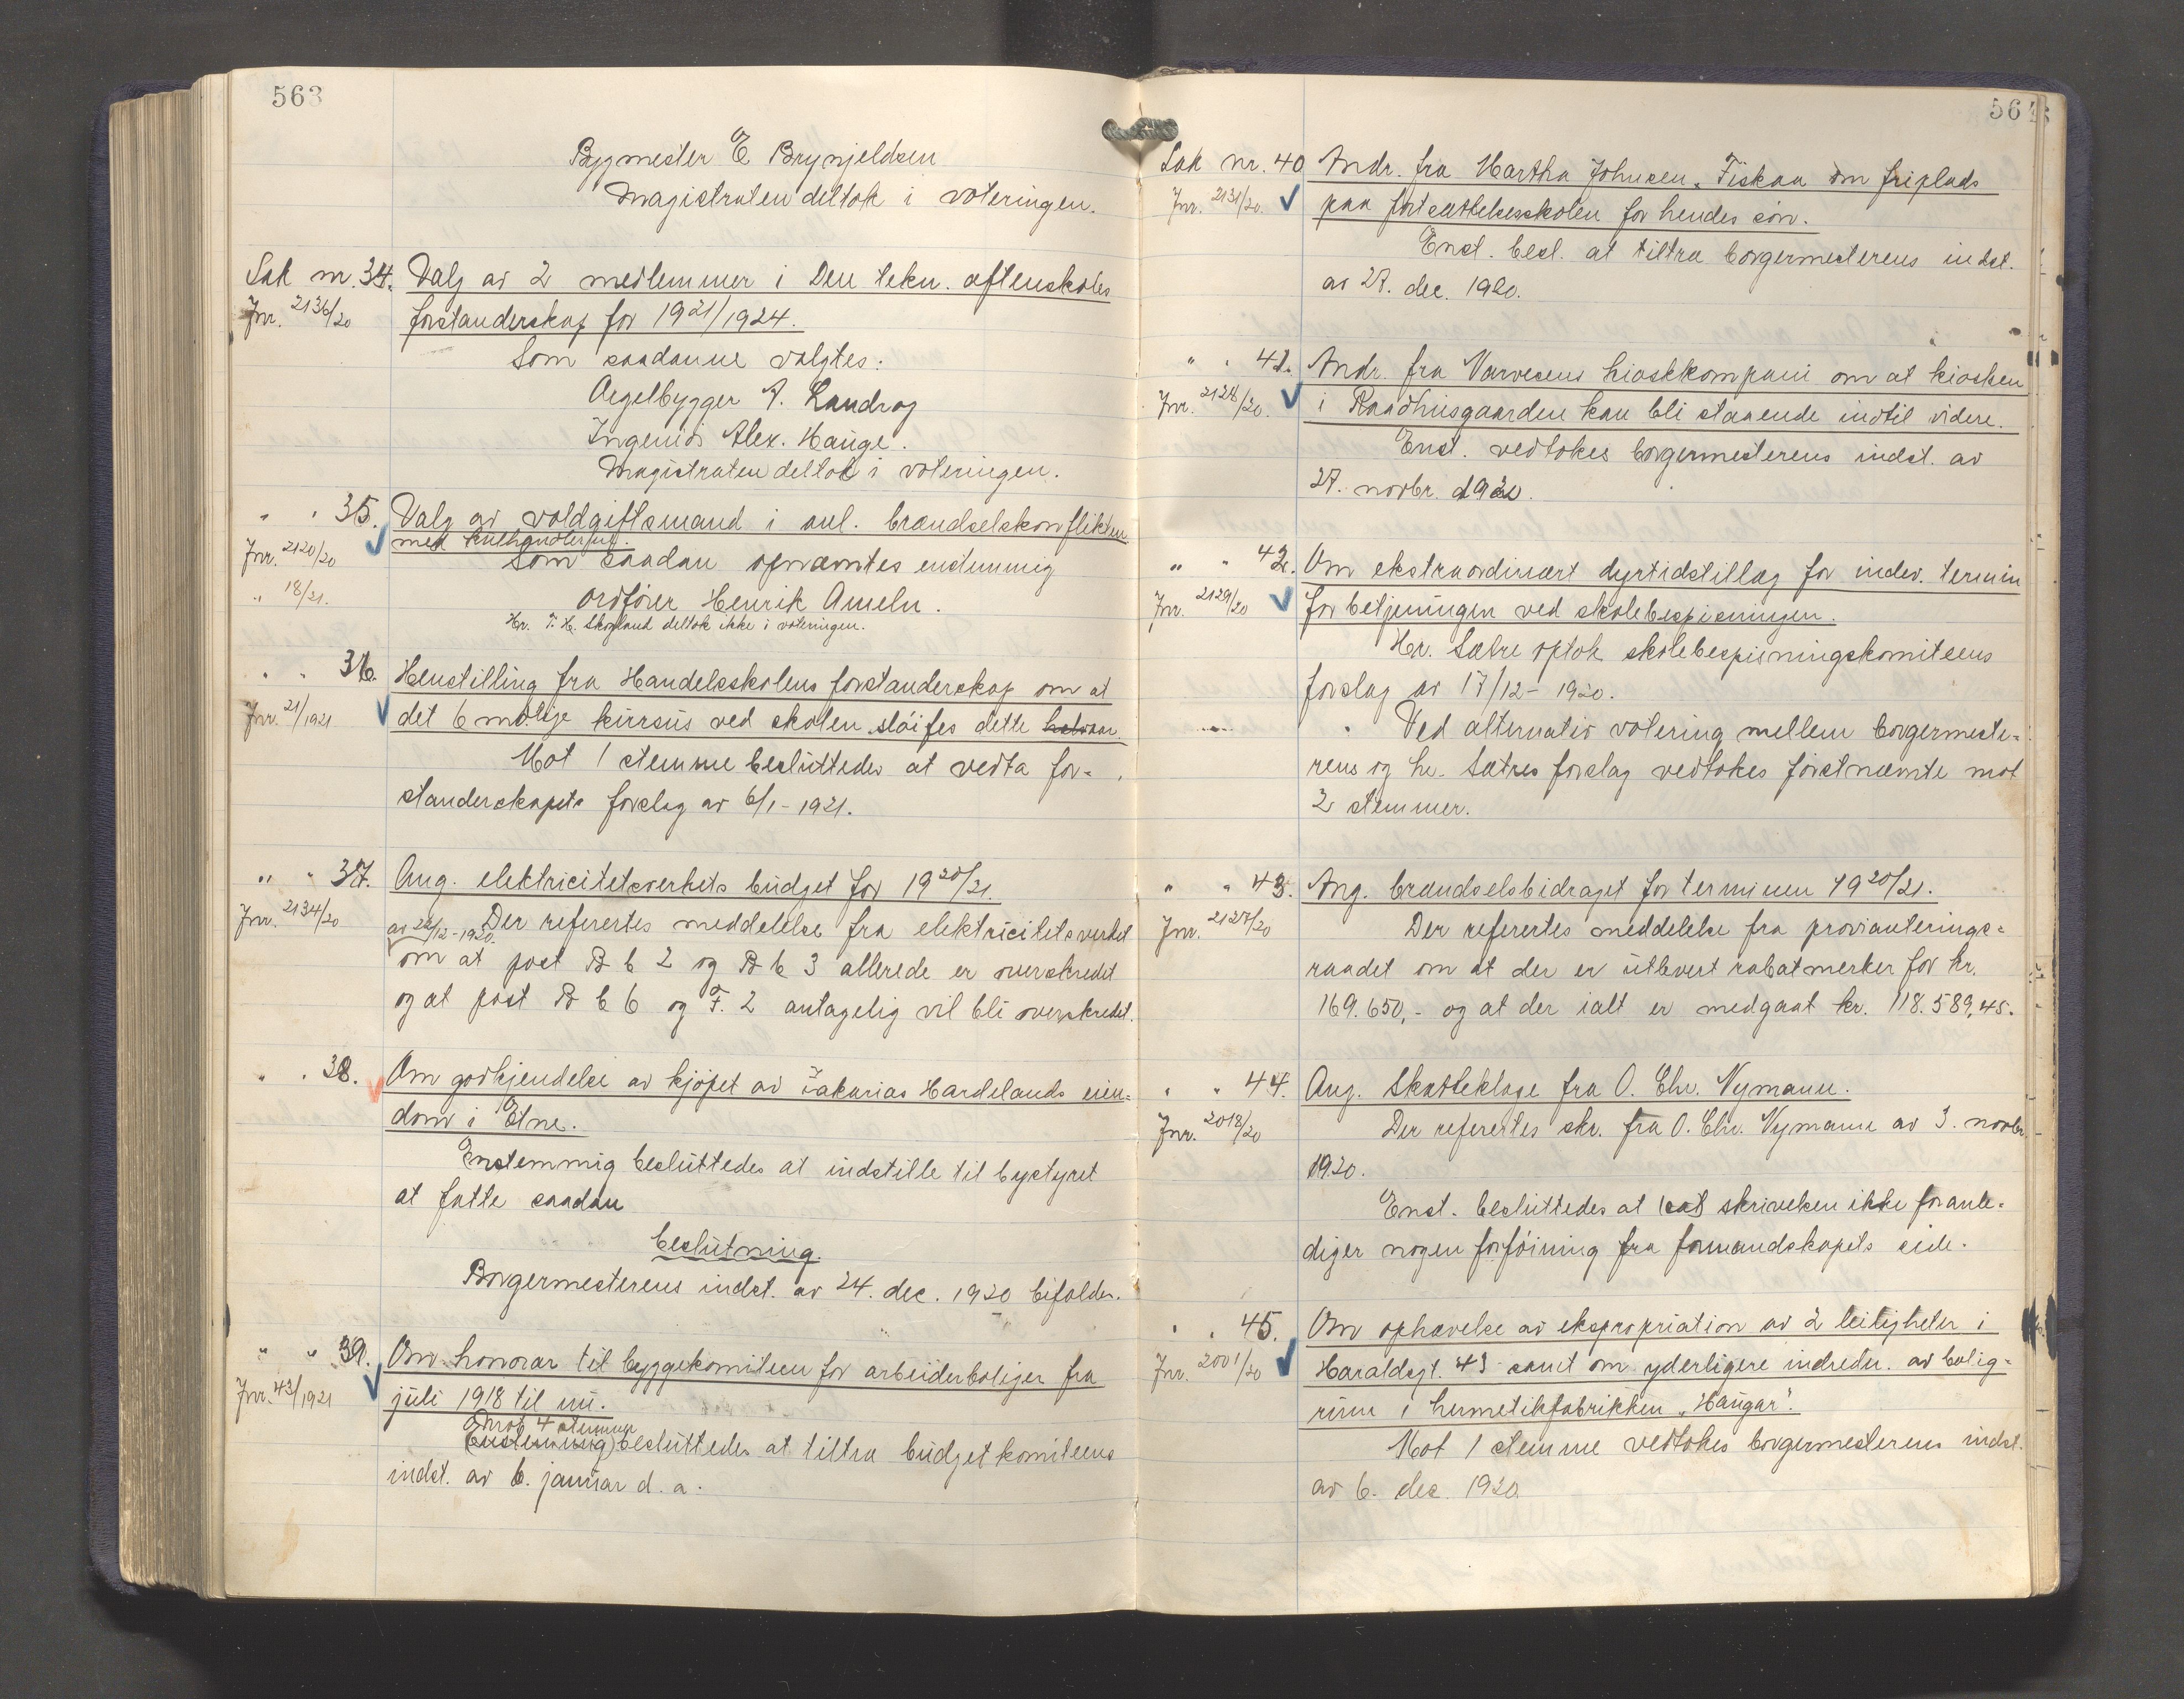 563
Byggmester E Brynjeldsen
Magistraten deltok i voteringen.
Sak nr. 34. Valg av 2 medlemmer i Den tekn. aftenskoles
Jnr. 2136/20 forstanderskap for 1921/1924.
Som saadanne valgtes:
Orgelbygger A. Landrog
Ingeniör Alex. Hauge.
Magistraten deltok i voteringen.
" " 35. Valg av voldgiftsmand i anl. brændselskonflikten
med kulhandlerne.
Jnr. 2120/20 Som saadan opnævntes enstemmig
" 18/21. ordfører Henrik Ameln.
Hr. T. H. Skogland deltok ikke i voteringen.
" " 36. Henstilling fra Handelsskolens forstanderskap om at
Jnr. 21/1921 det 6 mdlge kursus ved skolen slöifes dette halvaar.
Mot 1 stemme besluttedes at vedta for-
standerskapets forslag av 6/1-1921.
" " 37. Ang. elektricitetsverkets budget for 1920/21.
Jnr. 2134/20 av 22/12-1920. Der refertes meddelelse fra elektricitetsverket
om at post B b 2 og B b 3 allerede er overskredet
og at post B b 6 og F. 2 antagelig vil bli overskredet.
" " 38. Om godkjendelse av kjöpet av Zakarias Hardelands eien-
dom i Etne.
Enstemmig besluttedes at indstille til bystyret
at fatte saadan
beslutning.
Borgermesterens indst. av 24. dec. 1920 bifaldes.
" " 39. Om honorar til byggekomiteen for arbeiderboliger fra
Jnr. 43/1921 juli 1918 til nu.
mot 4 stemmer
(Enstemmig) besluttedes at tiltra budgetkomiteens
indst. av 6. januar d. a.
564
Sak nr. 40 Andr. fra Martha Johnsen, Fiskaa om friplads
Jnr. 2131/20. paa fortsættelsesskolen for hendes sön.
Enst. besl. at tiltra borgermesterens indst.
av 27. dec. 1920.
" " 41. Andr. fra Narvesens kioskkompani om at kiosken
Jnr. 2128/20. i Raadhusgaarden kan bli staaende indtil videre.
Enst. vedtokes borgermesterens indst. av
27. novbr. 1920.
" " 42. Om ekstraordinært dyrtidstillæg for indev. termin
Jnr. 2129/20 for betjeningen ved skolebespisningen.
Hr. Sætre optok skolebespisningskomiteens
forslag av 17/12-1920.
Ved alternativ votering mellem borgermeste-
rens og hr. Sætres forslag vedtokes förstnævnte mot
2 stemmer.
" " 43. Ang. brændselsbidraget for terminen 1920/21.
Jnr. 2127/20 Der refertes meddelelse fra provianterings-
raadet om at der er utlevert rabatmerker for kr.
169.650,- og at der ialt er medgaat kr. 118.589,45.
" " 44. Ang. Skatteklage fra O. Chr. Nymann.
Jnr. 2018/20 Der refertes skr. fra O. Chr. Nymann av 3. novbr.
1920.
Enst. besluttedes at skrivelsen ikke foranle-
diger nogen forföining fra formandskapets side.
" " 45. Om ophævelse av ekspropriation av 2 leiligheter i
Jnr. 2001/20 Haraldsgt. 43 samt om yderligere indredn. av bolig-
rum i hermetikfabrikken "Haugar".
Mot 1 stemme vedtokes borgermesterens indst.
av 6. dec. 1920.